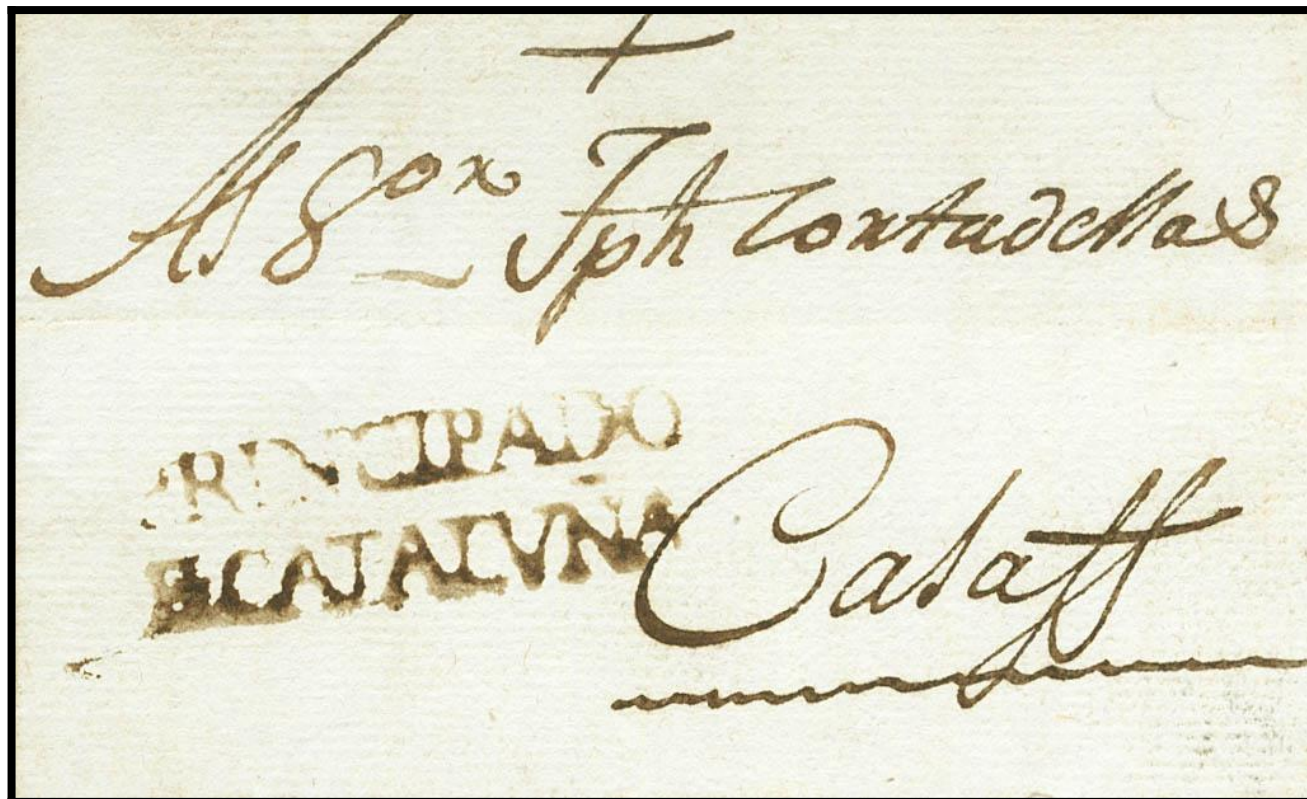 +
Al Sor Jph Cortadellas
PRINCIPADO
DE CATALUNA
Calaff